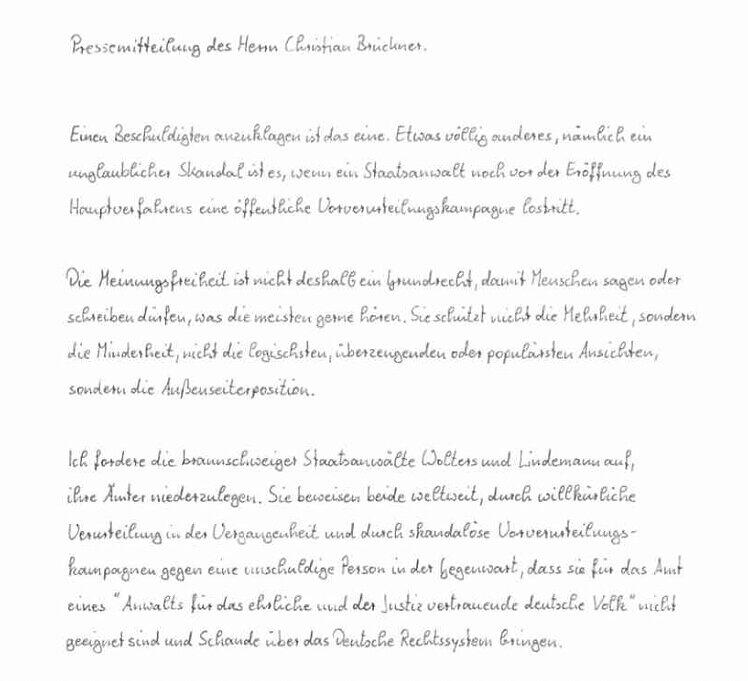 Pressemitteilung des Herrn Christian Brückner.
Einen Beschuldigten anzuklagen ist das eine. Etwas völlig anderes, nämlich ein
unglaublicher Skandal ist es, wenn ein Staatsanwalt noch vor der Eröffnung des
Hauptverfahrens eine öffentliche Vorverurteilungskampagne lostritt.
Die Meinungsfreiheit ist nicht deshalb ein Grundrecht, damit Menschen sagen oder
schreiben dürfen, was die meisten gerne hören. Sie schützt nicht die Mehrheit, sondern
die Minderheit, nicht die logischsten, überzeugenden oder populärsten Ansichten,
sondern die Außenseiterposition.
Ich fordere die braunschweiger Staatsanwälte Wolters und Lindemann auf,
ihre Ämter niederzulegen. Sie beweisen beide weltweit, durch willkürliche
Verurteilung in der Vergangenheit und durch skandalöse Vorverurteilungs-
kampagnen gegen eine unschuldige Person in der Gegenwart, dass sie für das Amt
eines "Anwalts für das ehrliche und der Justiz vertrauende deutsche Volk" nicht
geeignet sind und Schande über das Deutsche Rechtssystem bringen.